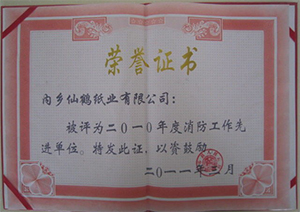 荣誉证书
内乡仙鹤纸业有限公司：
被评为二〇一〇年度消防工作先
进单位。特发此证，以资鼓励。
二〇一一年三月